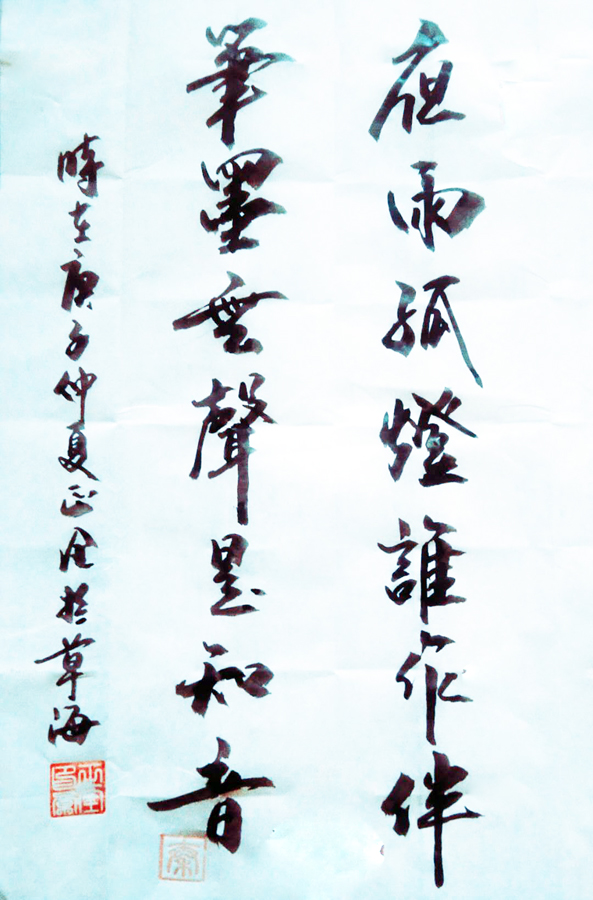 夜雨孤燈誰作伴
筆墨無聲是知音
時在庚子仲夏正全於草海